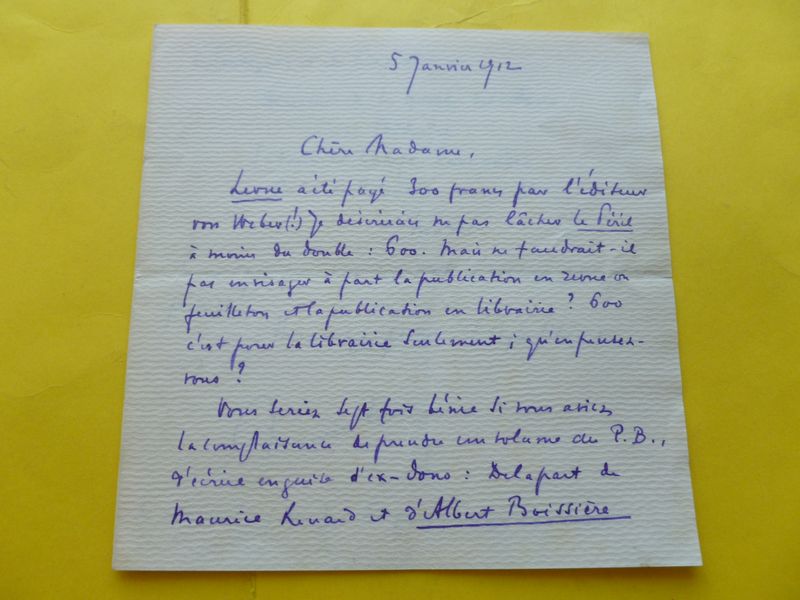 5 Janvier 1912
Chère Madame,
Lerne a été payé 300 francs par l'éditeur
von Weber (!) Je désirerais ne pas lâcher le Péril
à moins du double : 600. Mais ne faudrait-il
pas envisager à part la publication en revue ou
feuilleton et la publication en librairie ? 600
c'est pour la librairie seulement ; qu'en pensez-
vous ?
Vous seriez sept fois bénie si vous aviez
la complaisance de prendre un volume du P.B.,
d'écrire en guise d'ex-dono : De la part de
Maurice Renard et d'Albert Boissière